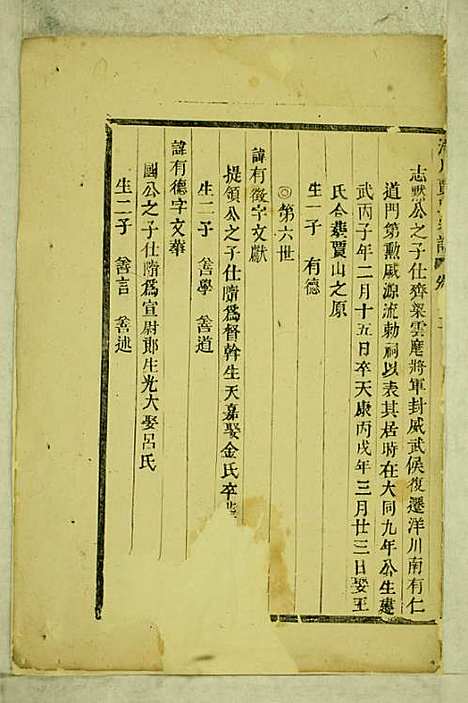 志默公之子仕齊梁雲麾將軍封威武侯復遷洋川南有仁
道門第勲戚源流勅祠以表其居時在大同九年公生建
武丙子年二月十五日卒天康丙戌年三月廿三日娶王
氏合葬賈山之原
生一子 有德
◎第六世
諱有徵字文獻
提領公之子仕隋爲督幹生天嘉娶金氏卒葬
生二子 善學 善道
諱有德字文華
國公之子仕隋爲宣尉郎生光大娶呂氏
生二子 善言 善述